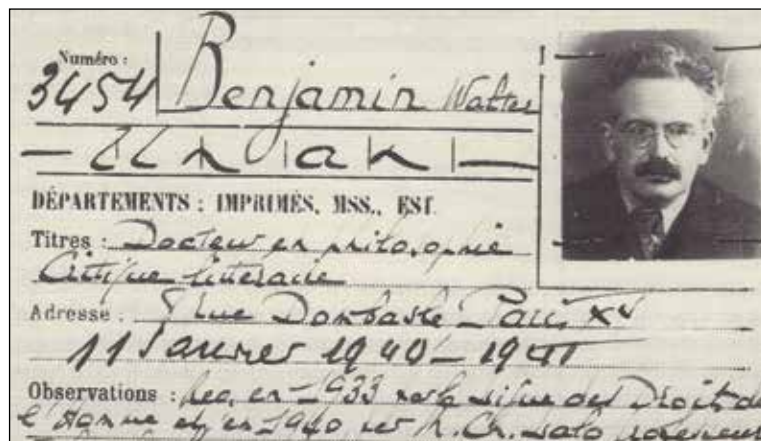 Numéro :
3454 Benjamin Walter
DÉPARTEMENTS : IMPRIMÉS, MSS., EST.
Titres : Docteur en philosophie
Critique littéraire
Adresse : rue Dombasle Paris XV
11 Janvier 1940 – 1941
Observations : Rec. en 1933 par la Ligue des Droits de
l'Homme et en 1940 par